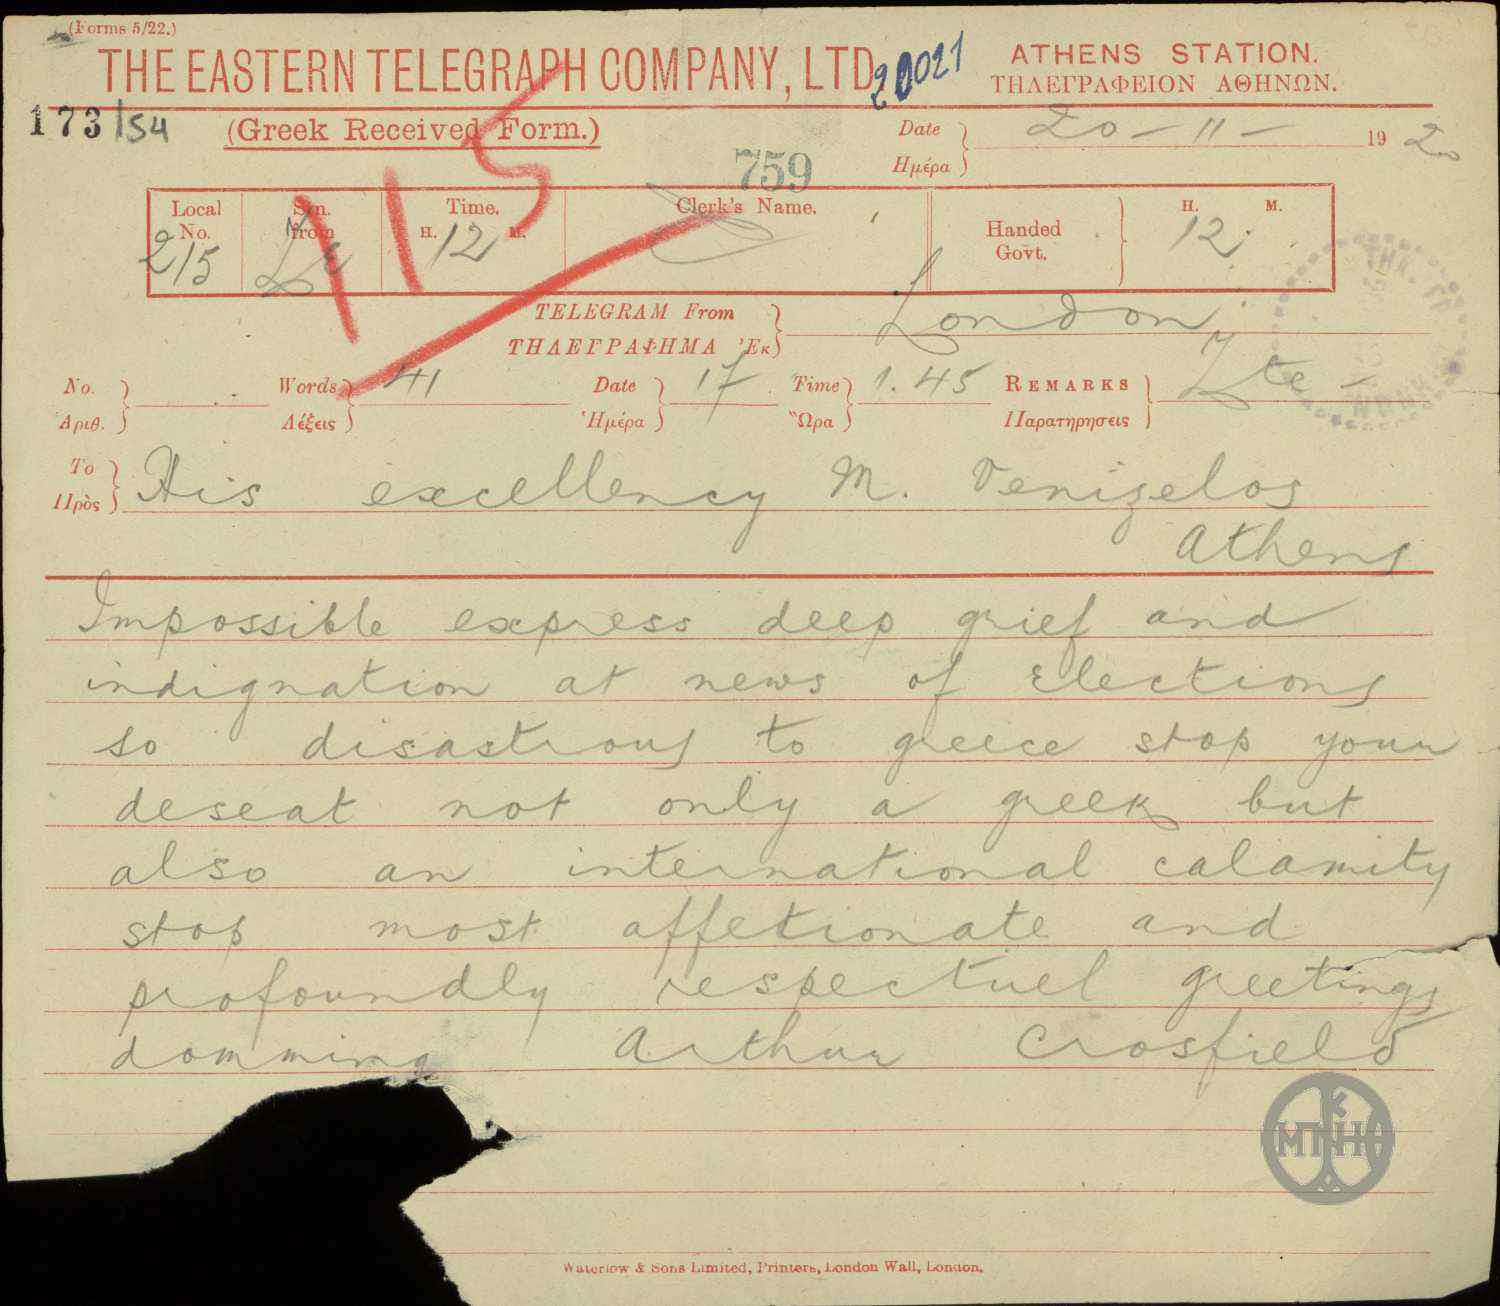 (Forms 5/22.)
THE EASTERN TELEGRAPH COMPANY, LTD
20021
ATHENS STATION.
ΤΗΛΕΓΡΑΦΕΙΟΝ ΑΘΗΝΩΝ.
173/54
(Greek Received Form.)
115
759
Date
Ημέρα
20-11- 1920
Local No.
215
Stn. from
Time.
H. 12 M.
Clerk's Name.
Handed Govt.
H. M.
12
TELEGRAM From
ΤΗΛΕΓΡΑΦΗΜΑ Ἐκ
London
No.
Ἀριθ.
Words
Λέξεις
41
Date
Ἡμέρα
17
Time
Ὥρα
1.45
REMARKS
Παρατηρησεις
Lte -
To
Πρὸς
His excellency M. Venizelos
Athens
Impossible express deep grief and
indignation at news of elections
so disastrous to greece stop your
deseat not only a greek but
also an international calamity
stop most affetionate and
profoundly respectuel greetings
domming Arthur Crosfield
Waterlow & Sons Limited, Printers, London Wall, London.